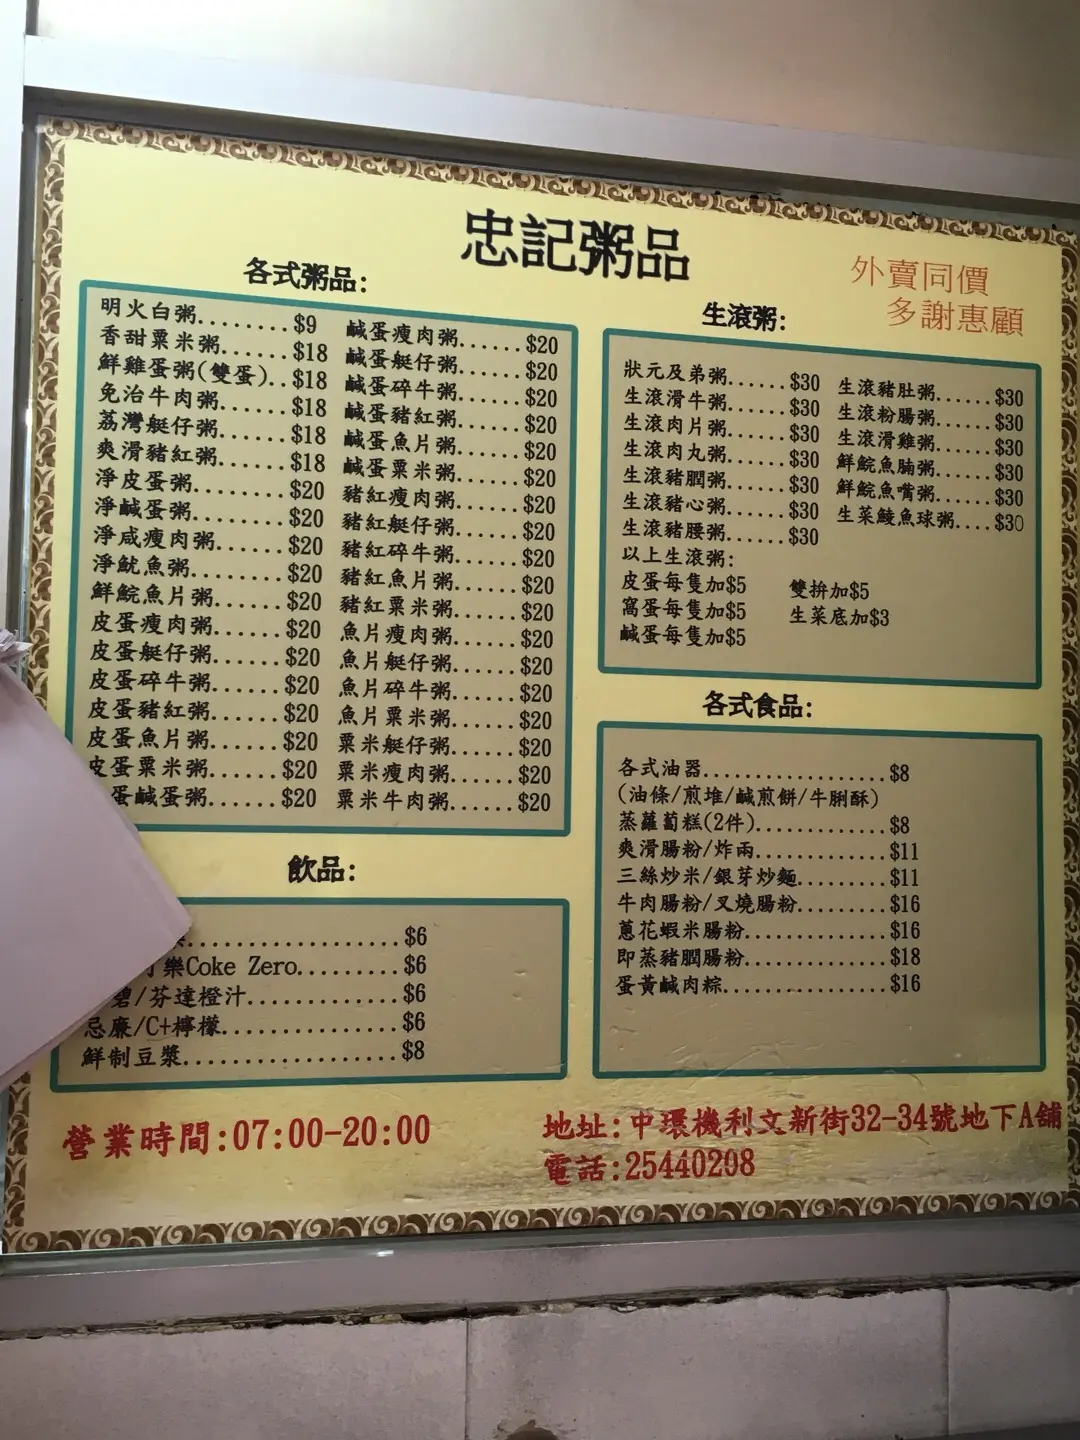 忠記粥品
外賣同價
多謝惠顧
各式粥品:
明火白粥........$9
香甜粟米粥......$18
鮮雞蛋粥(雙蛋)..$18
免治牛肉粥......$18
荔灣艇仔粥......$18
爽滑豬紅粥......$18
淨皮蛋粥........$20
淨鹹蛋粥........$20
淨咸瘦肉粥......$20
淨魷魚粥........$20
鮮鯇魚片粥......$20
皮蛋瘦肉粥......$20
皮蛋艇仔粥......$20
皮蛋碎牛粥......$20
皮蛋豬紅粥......$20
皮蛋魚片粥......$20
皮蛋粟米粥......$20
蛋鹹蛋粥......$20
鹹蛋瘦肉粥......$20
鹹蛋艇仔粥......$20
鹹蛋碎牛粥......$20
鹹蛋豬紅粥......$20
鹹蛋魚片粥......$20
鹹蛋粟米粥......$20
豬紅瘦肉粥......$20
豬紅艇仔粥......$20
豬紅碎牛粥......$20
豬紅魚片粥......$20
豬紅粟米粥......$20
魚片瘦肉粥......$20
魚片艇仔粥......$20
魚片碎牛粥......$20
魚片粟米粥......$20
粟米艇仔粥......$20
粟米瘦肉粥......$20
粟米牛肉粥......$20
生滾粥:
狀元及弟粥......$30
生滾滑牛粥......$30
生滾肉片粥......$30
生滾肉丸粥......$30
生滾豬膶粥......$30
生滾豬心粥......$30
生滾豬腰粥......$30
生滾豬肚粥......$30
生滾粉腸粥......$30
生滾滑雞粥......$30
鮮鯇魚腩粥......$30
鮮鯇魚嘴粥......$30
生菜鯪魚球粥....$30
以上生滾粥:
皮蛋每隻加$5
窩蛋每隻加$5
鹹蛋每隻加$5
雙拚加$5
生菜底加$3
各式食品:
各式油器.................$8
(油條/煎堆/鹹煎餅/牛脷酥)
蒸蘿蔔糕(2件)............$8
爽滑腸粉/炸兩............$11
三絲炒米/銀芽炒麵........$11
牛肉腸粉/叉燒腸粉........$16
蔥花蝦米腸粉.............$16
即蒸豬膶腸粉.............$18
蛋黃鹹肉粽...............$16
飲品:
..................$6
樂Coke Zero.........$6
碧/芬達橙汁.............$6
忌廉/C+檸檬...............$6
鮮制豆漿..................$8
營業時間:07:00-20:00
地址:中環機利文新街32-34號地下A舖
電話:25440208